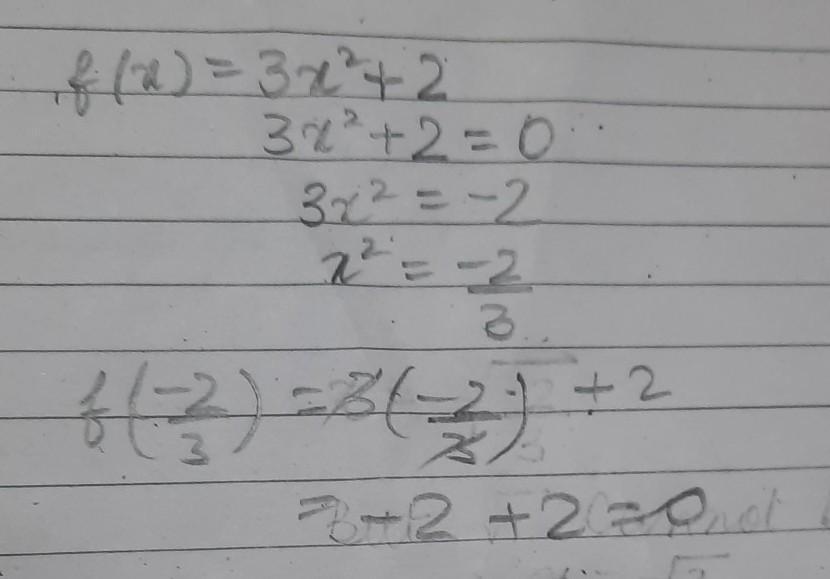 f(x) = 3x² + 2
3x² + 2 = 0
3x² = -2
x² = -2/3
f(-2/3) = 3(-2/3) + 2
= -2 + 2 = 0